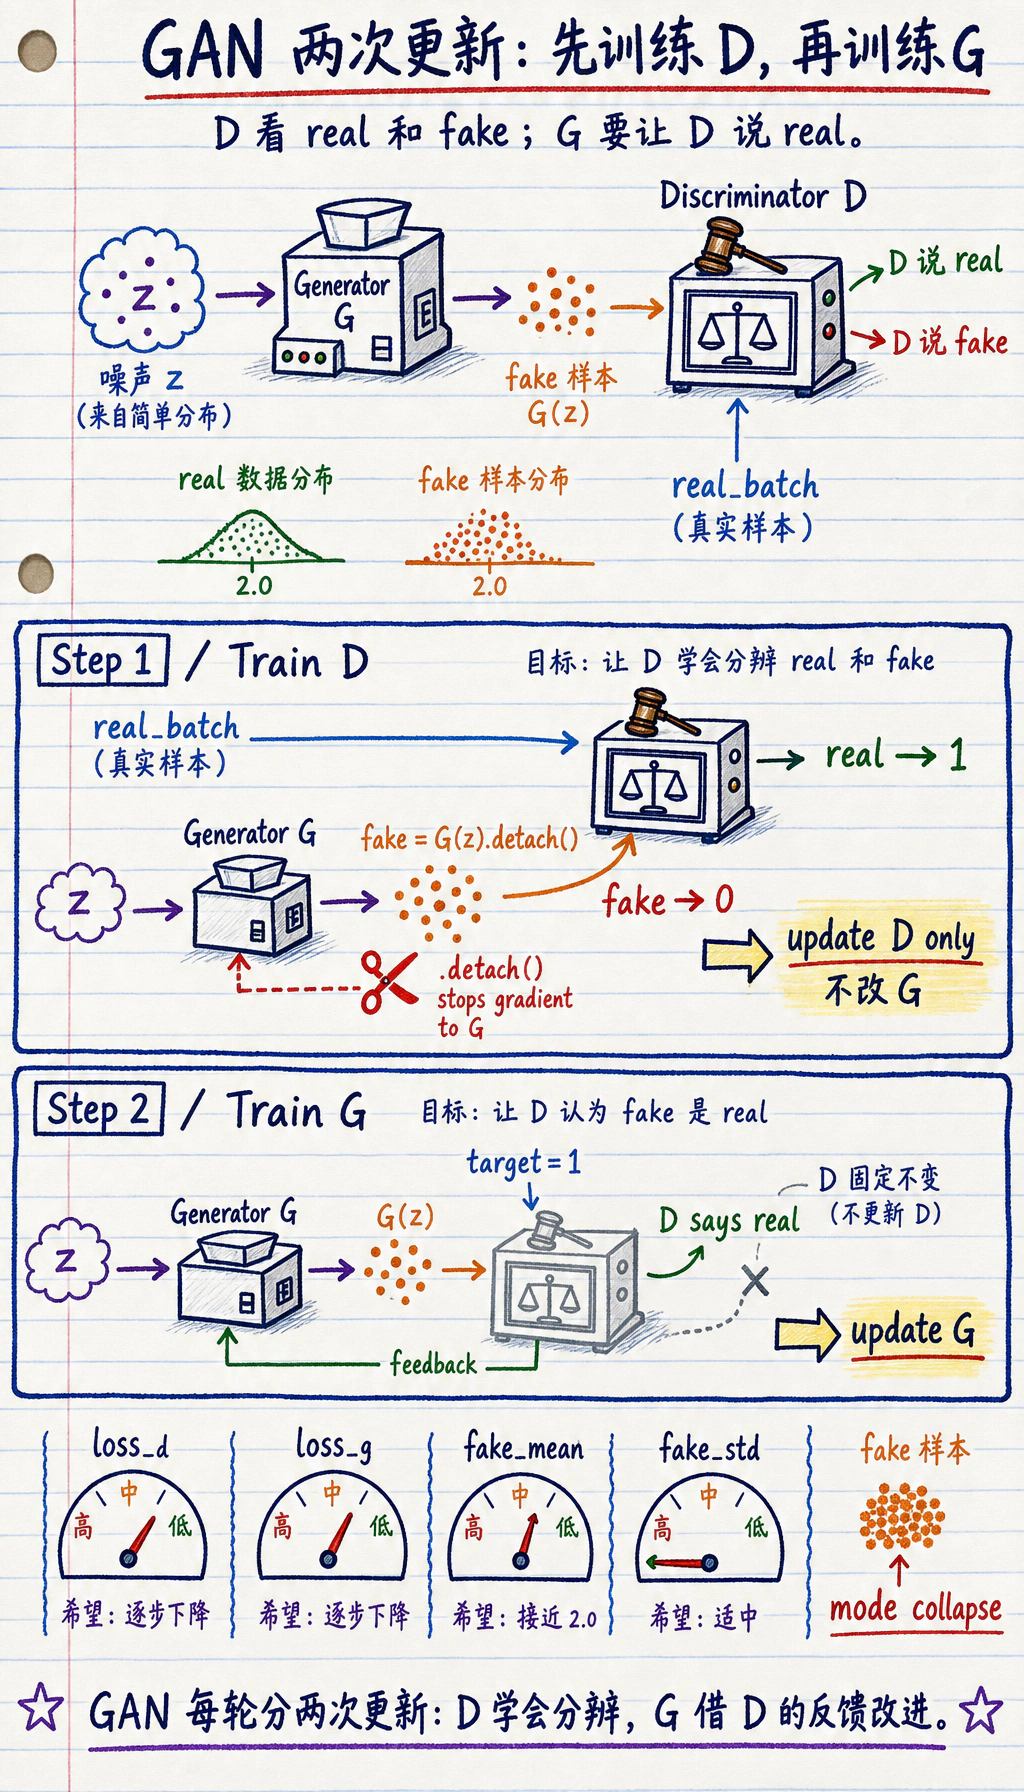 GAN 两次更新：先训练 D，再训练 G
D 看 real 和 fake；G 要让 D 说 real。
Discriminator D
Generator
G
z
D 说 real
D 说 fake
噪声 z
(来自简单分布)
fake 样本
G(z)
real_batch
(真实样本)
real 数据分布
2.0
fake 样本分布
2.0
Step 1 / Train D
目标：让 D 学会分辨 real 和 fake
real_batch
(真实样本)
real → 1
Generator G
fake = G(z).detach()
z
fake → 0
update D only
不改 G
.detach()
stops gradient
to G
Step 2 / Train G
目标：让 D 认为 fake 是 real
target = 1
D 固定不变
(不更新 D)
Generator G
G(z)
D says real
z
update G
feedback
loss_d
高 中 低
希望：逐步下降
loss_g
高 中 低
希望：逐步下降
fake_mean
高 中 低
希望：接近 2.0
fake_std
高 中 低
希望：适中
fake 样本
mode collapse
GAN 每轮分两次更新：D 学会分辨，G 借 D 的反馈改进。